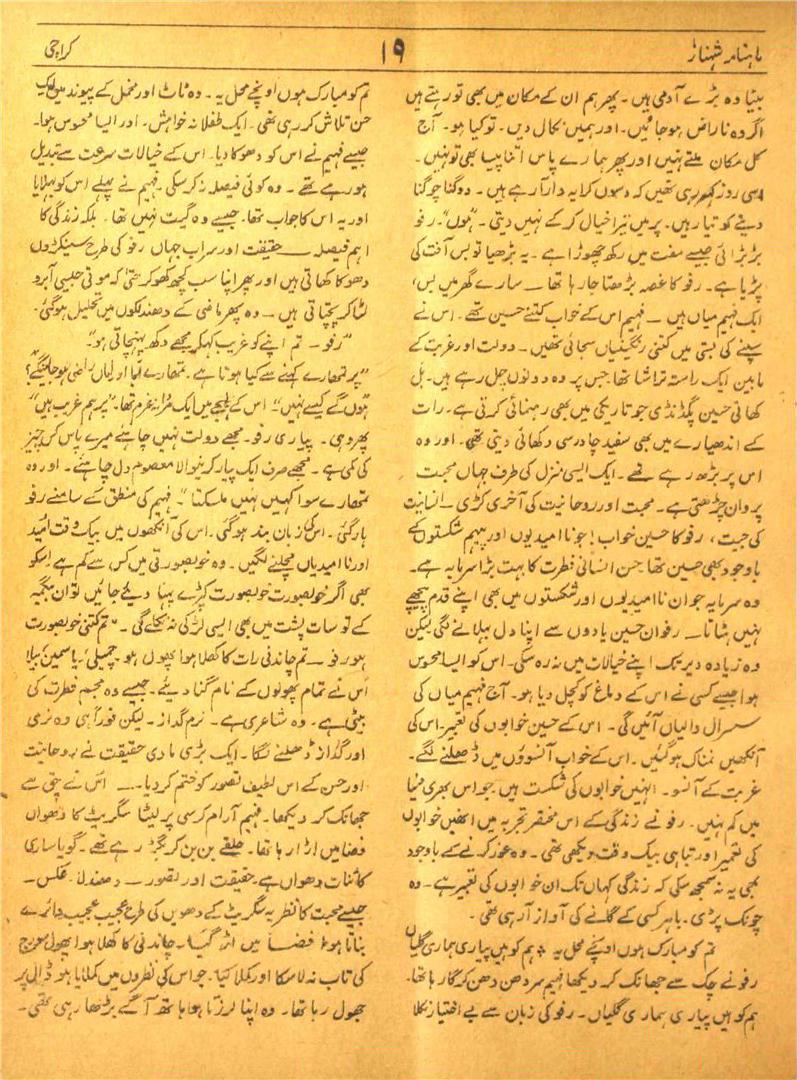 ماہنامہ شہناز
۱۹
کراچی
بیٹا وہ بڑے آدمی ہیں۔ پھر ہم ان کے مکان میں بھی تو رہتے ہیں
اگر وہ ناراض ہو جائیں۔ اور ہمیں نکال دیں۔ تو کیا ہو۔ آج
کل مکان ملتے نہیں اور پھر ہمارے پاس اتنا پیسا بھی تو نہیں۔
اسی روز کہہ رہی تھیں کہ دسوں کرایہ دار آ رہے ہیں۔ دوگنا چوگنا
دینے کو تیار ہیں۔ پر میں تیرا خیال کر کے نہیں دیتی۔ "ہوں"۔ رفو
بڑبڑائی جیسے مفت میں رکھ چھوڑا ہے۔ یہ بڑھیا تو بس آفت کی
پڑیا ہے۔ رفو کا غصہ بڑھتا جا رہا تھا ــ سارے گھر میں بس،
ایک فہیم میاں ہیں ــ فہیم اس کے خواب کتنے حسین تھے۔ اس نے
سپنے کی بستی میں کتنی رنگینیاں سجائی تھیں۔ دولت اور غربت کے
مابین ایک راستہ تراشا تھا جس پر وہ دونوں چل رہے ہیں۔ بل
کھاتی حسین پگڈنڈی جو تاریکی میں بھی رہنمائی کرتی ہے۔ رات
کے اندھیارے میں بھی سفید چادر سی دکھائی دیتی تھی۔ اور وہ
اس پر بڑھ رہے تھے۔ ایک ایسی منزل کی طرف جہاں محبت
پروان چڑھتی ہے۔ محبت اور روحانیت کی آخری کڑی۔ انسانیت
کی جیت، رفو کا حسین خواب! جو نا امیدیوں اور پیہم شکستوں کے
باوجود بھی حسین تھا۔ حسن انسانی فطرت کا بہت بڑا سرمایہ ہے۔
وہ سرمایہ جو ان نا امیدیوں اور شکستوں میں بھی اپنے قدم پیچھے
نہیں ہٹاتا ــ رفو ان حسین یادوں سے اپنا دل بہلانے لگی لیکن
وہ زیادہ دیر تک اپنے خیالات میں نہ رہ سکی۔ اس کو ایسا محسوس
ہوا جیسے کسی نے اس کے دماغ کو کچل دیا ہو۔ آج فہیم میاں کی
سسرال والیاں آئیں گی۔ اس کے حسین خوابوں کی تعبیر۔ اس کی
آنکھیں نمناک ہو گئیں۔ اس کے خواب آنسوؤں میں ڈھلنے لگے۔
غربت کے آنسو۔ انہیں خوابوں کی شکست ہیں۔ جو اس بھری دنیا
میں کم نہیں۔ رفو نے زندگی کے اس مختصر تجربہ میں انھیں خوابوں
کی تعمیر اور تباہی بیک وقت دیکھی تھی۔ وہ غور کرنے کے باوجود
بھی یہ نہ سمجھ سکی کہ زندگی کہاں تک ان خوابوں کی تعبیر ہے۔ وہ
چونک پڑی۔ باہر کسی کے گانے کی آواز آ رہی تھی۔
تم کو مبارک ہوں اونچے محل یہ ÷ ہم کو ہیں پیاری ہماری گلیاں
رفو نے چک سے جھانک کر دیکھا فہیم سر دھن دھن کر گا رہا تھا۔
ہم کو ہیں پیاری ہماری گلیاں۔ رفو کی زبان سے بے اختیار نکلا
تم کو مبارک ہوں اونچے محل یہ۔ وہ ٹاٹ اور مخمل کے پیوند میں ایک
حسن تلاش کر رہی تھی۔ ایک طفلانہ خواہش۔ اور ایسا محسوس ہوا۔
جیسے فہیم نے اس کو دھوکا دیا۔ اس کے خیالات سرعت سے تبدیل
ہو رہے تھے۔ وہ کوئی فیصلہ نہ کر سکی۔ فہیم نے پہلے اس کو بہلایا
اور یہ اس کا جواب تھا۔ جیسے وہ گیت نہیں تھا۔ بلکہ زندگی کا
اہم فیصلہ ــ حقیقت اور سراب جہاں رفو کی طرح سینکڑوں
دھوکا کھاتی ہیں اور پھر اپنا سب کچھ کھو کر حتیٰ کہ موتی جیسی آبرو
لٹا کر پچتاتی ہیں ــ وہ پھر ماضی کے دھندلکوں میں تحلیل ہو گئی۔
"رفو ــ تم اپنے کو غریب کہہ کر مجھے دکھ پہنچاتی ہو"۔
"پر تمھارے کہنے سے کیا ہوتا ہے۔ تمھارے ابا اور اماں راضی ہو جائینگے؟
"ہوں گے کیسے نہیں"۔ اس کے لہجے میں ایک عزم تھا۔ "پر ہم غریب ہیں"
پھر وہی۔ پیاری رفو۔ مجھے دولت نہیں چاہیئے میرے پاس کس چیز
کی کمی ہے۔ مجھے صرف ایک پیار کرنیوالا معصوم دل چاہئے۔ اور وہ
تمھارے سوا کہیں نہیں مل سکتا"۔ فہیم کی منطق کے سامنے رفو
ہار گئی۔ اسکی زبان بند ہو گئی۔ اس کی آنکھوں میں بیک وقت امید
اور نا امیدیاں مچلنے لگیں۔ وہ خوبصورتی میں کس سے کم ہے اسکو
بھی اگر خوبصورت خوبصورت کپڑے پہنا دیئے جائیں تو ان بیگمیہ
کے تو سات پشت میں بھی ایسی لڑکی نہ نکلے گی۔ "تم کتنی خوبصورت
ہو رفو ــ تم چاندنی رات کا کھلا ہوا پھول ہو۔ چمبیلی، یاسمین، بیلا
اس نے تمام پھولوں کے نام گنا دیئے۔ جیسے وہ مجسم فطرت کی
بیٹی ہے۔ وہ شاعری ہے۔ نرم گداز۔ لیکن فوراً ہی وہ نرمی
اور گداز ڈھلنے لگا۔ ایک بڑی مادی حقیقت نے روحانیت
اور حسن کے اس لطیف تصور کو ختم کر دیا ــ اس نے چق سے
جھانک کر دیکھا۔ فہیم آرام کرسی پر لیٹا سگریٹ کا دھواں
فضا میں اڑا رہا تھا۔ حلقے بن بن کر بگڑ رہے تھے۔ گویا ساری
کائنات دھواں ہے۔ حقیقت اور تصور ــ دھندلا عکس۔
جیسے محبت کا نظریہ سگریٹ کے دھویں کی طرح عجیب عجیب دائرے
بناتا ہوا فضا میں اڑ گیا۔ چاندنی کا کھلا ہوا پھول سورج
کی تاب نہ لا سکا اور کملا گیا۔ جو اس کی نظروں میں کملایا ہو ڈال پر
جھول رہا تھا۔ وہ اپنا لرزتا ہوا ہاتھ آگے بڑھا رہی تھی۔